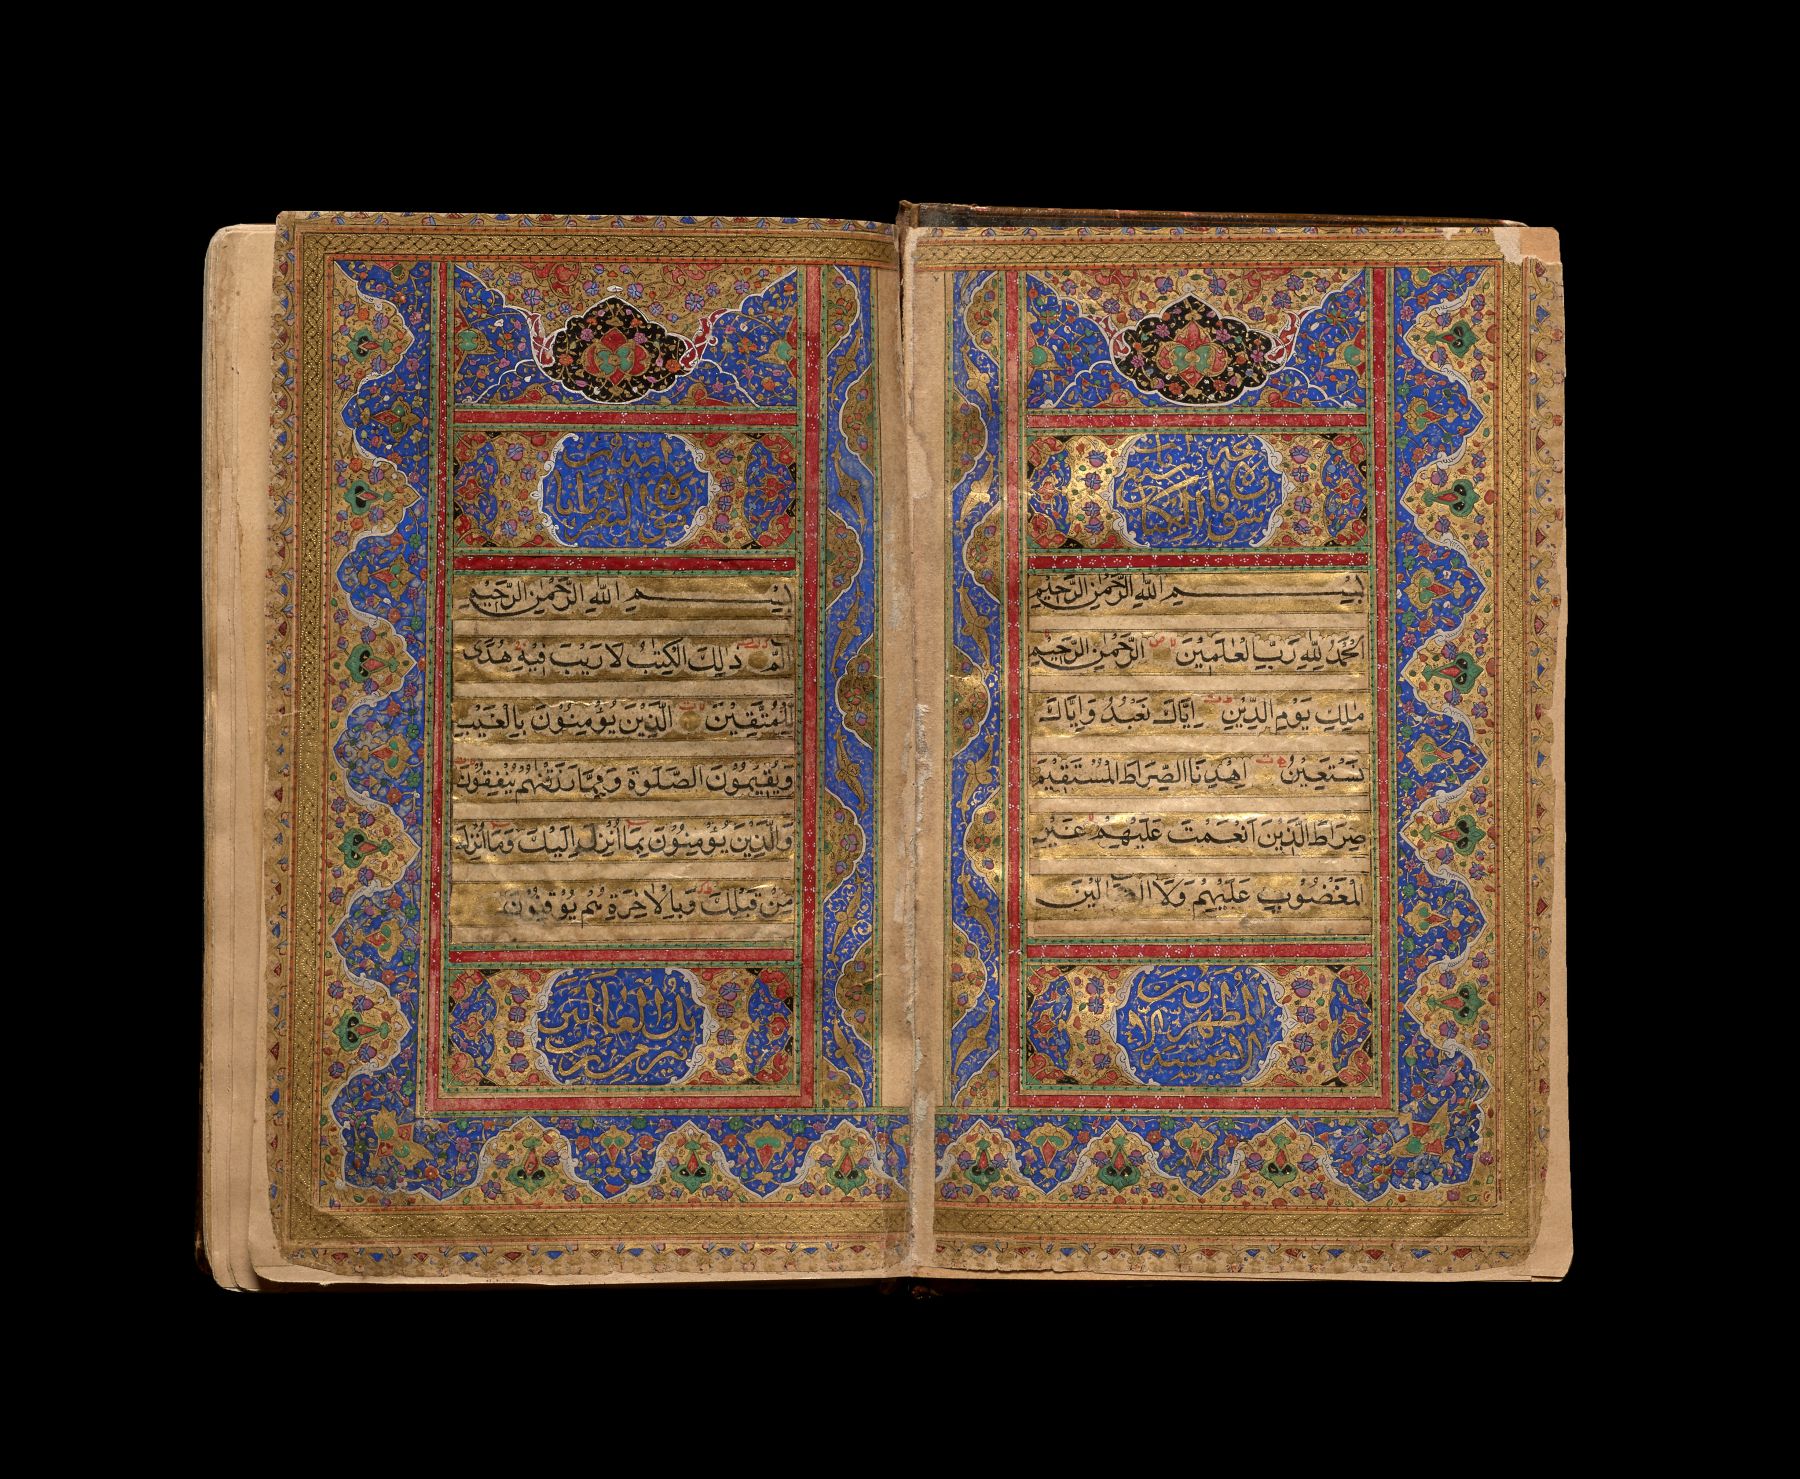 سورة فاتحة الكتاب
بِسْمِ اللّٰهِ الرَّحْمٰنِ الرَّحِيمِ
اَلْحَمْدُ لِلّٰهِ رَبِّ الْعٰلَمِيْنَ الرَّحْمٰنِ الرَّحِيمِ
مٰلِكِ يَوْمِ الدِّيْنِ اِيَّاكَ نَعْبُدُ وَاِيَّاكَ
نَسْتَعِيْنُ اِهْدِنَا الصِّرَاطَ الْمُسْتَقِيْمَ
صِرَاطَ الَّذِيْنَ اَنْعَمْتَ عَلَيْهِمْ غَيْرِ
الْمَغْضُوْبِ عَلَيْهِمْ وَلَا الضَّالِّيْنَ
لا يمسه الا المطهرون
سورة البقرة
بِسْمِ اللّٰهِ الرَّحْمٰنِ الرَّحِيمِ
الٓمّٓ ذٰلِكَ الْكِتٰبُ لَا رَيْبَ فِيْهِ هُدًى
لِلْمُتَّقِيْنَ الَّذِيْنَ يُؤْمِنُوْنَ بِالْغَيْبِ
وَيُقِيْمُوْنَ الصَّلٰوةَ وَمِمَّا رَزَقْنٰهُمْ يُنْفِقُوْنَ
وَالَّذِيْنَ يُؤْمِنُوْنَ بِمَا اُنْزِلَ اِلَيْكَ وَمَا اُنْزِلَ
مِنْ قَبْلِكَ وَبِالْاٰخِرَةِ هُمْ يُوْقِنُوْنَ
تنزيل من رب العالمين